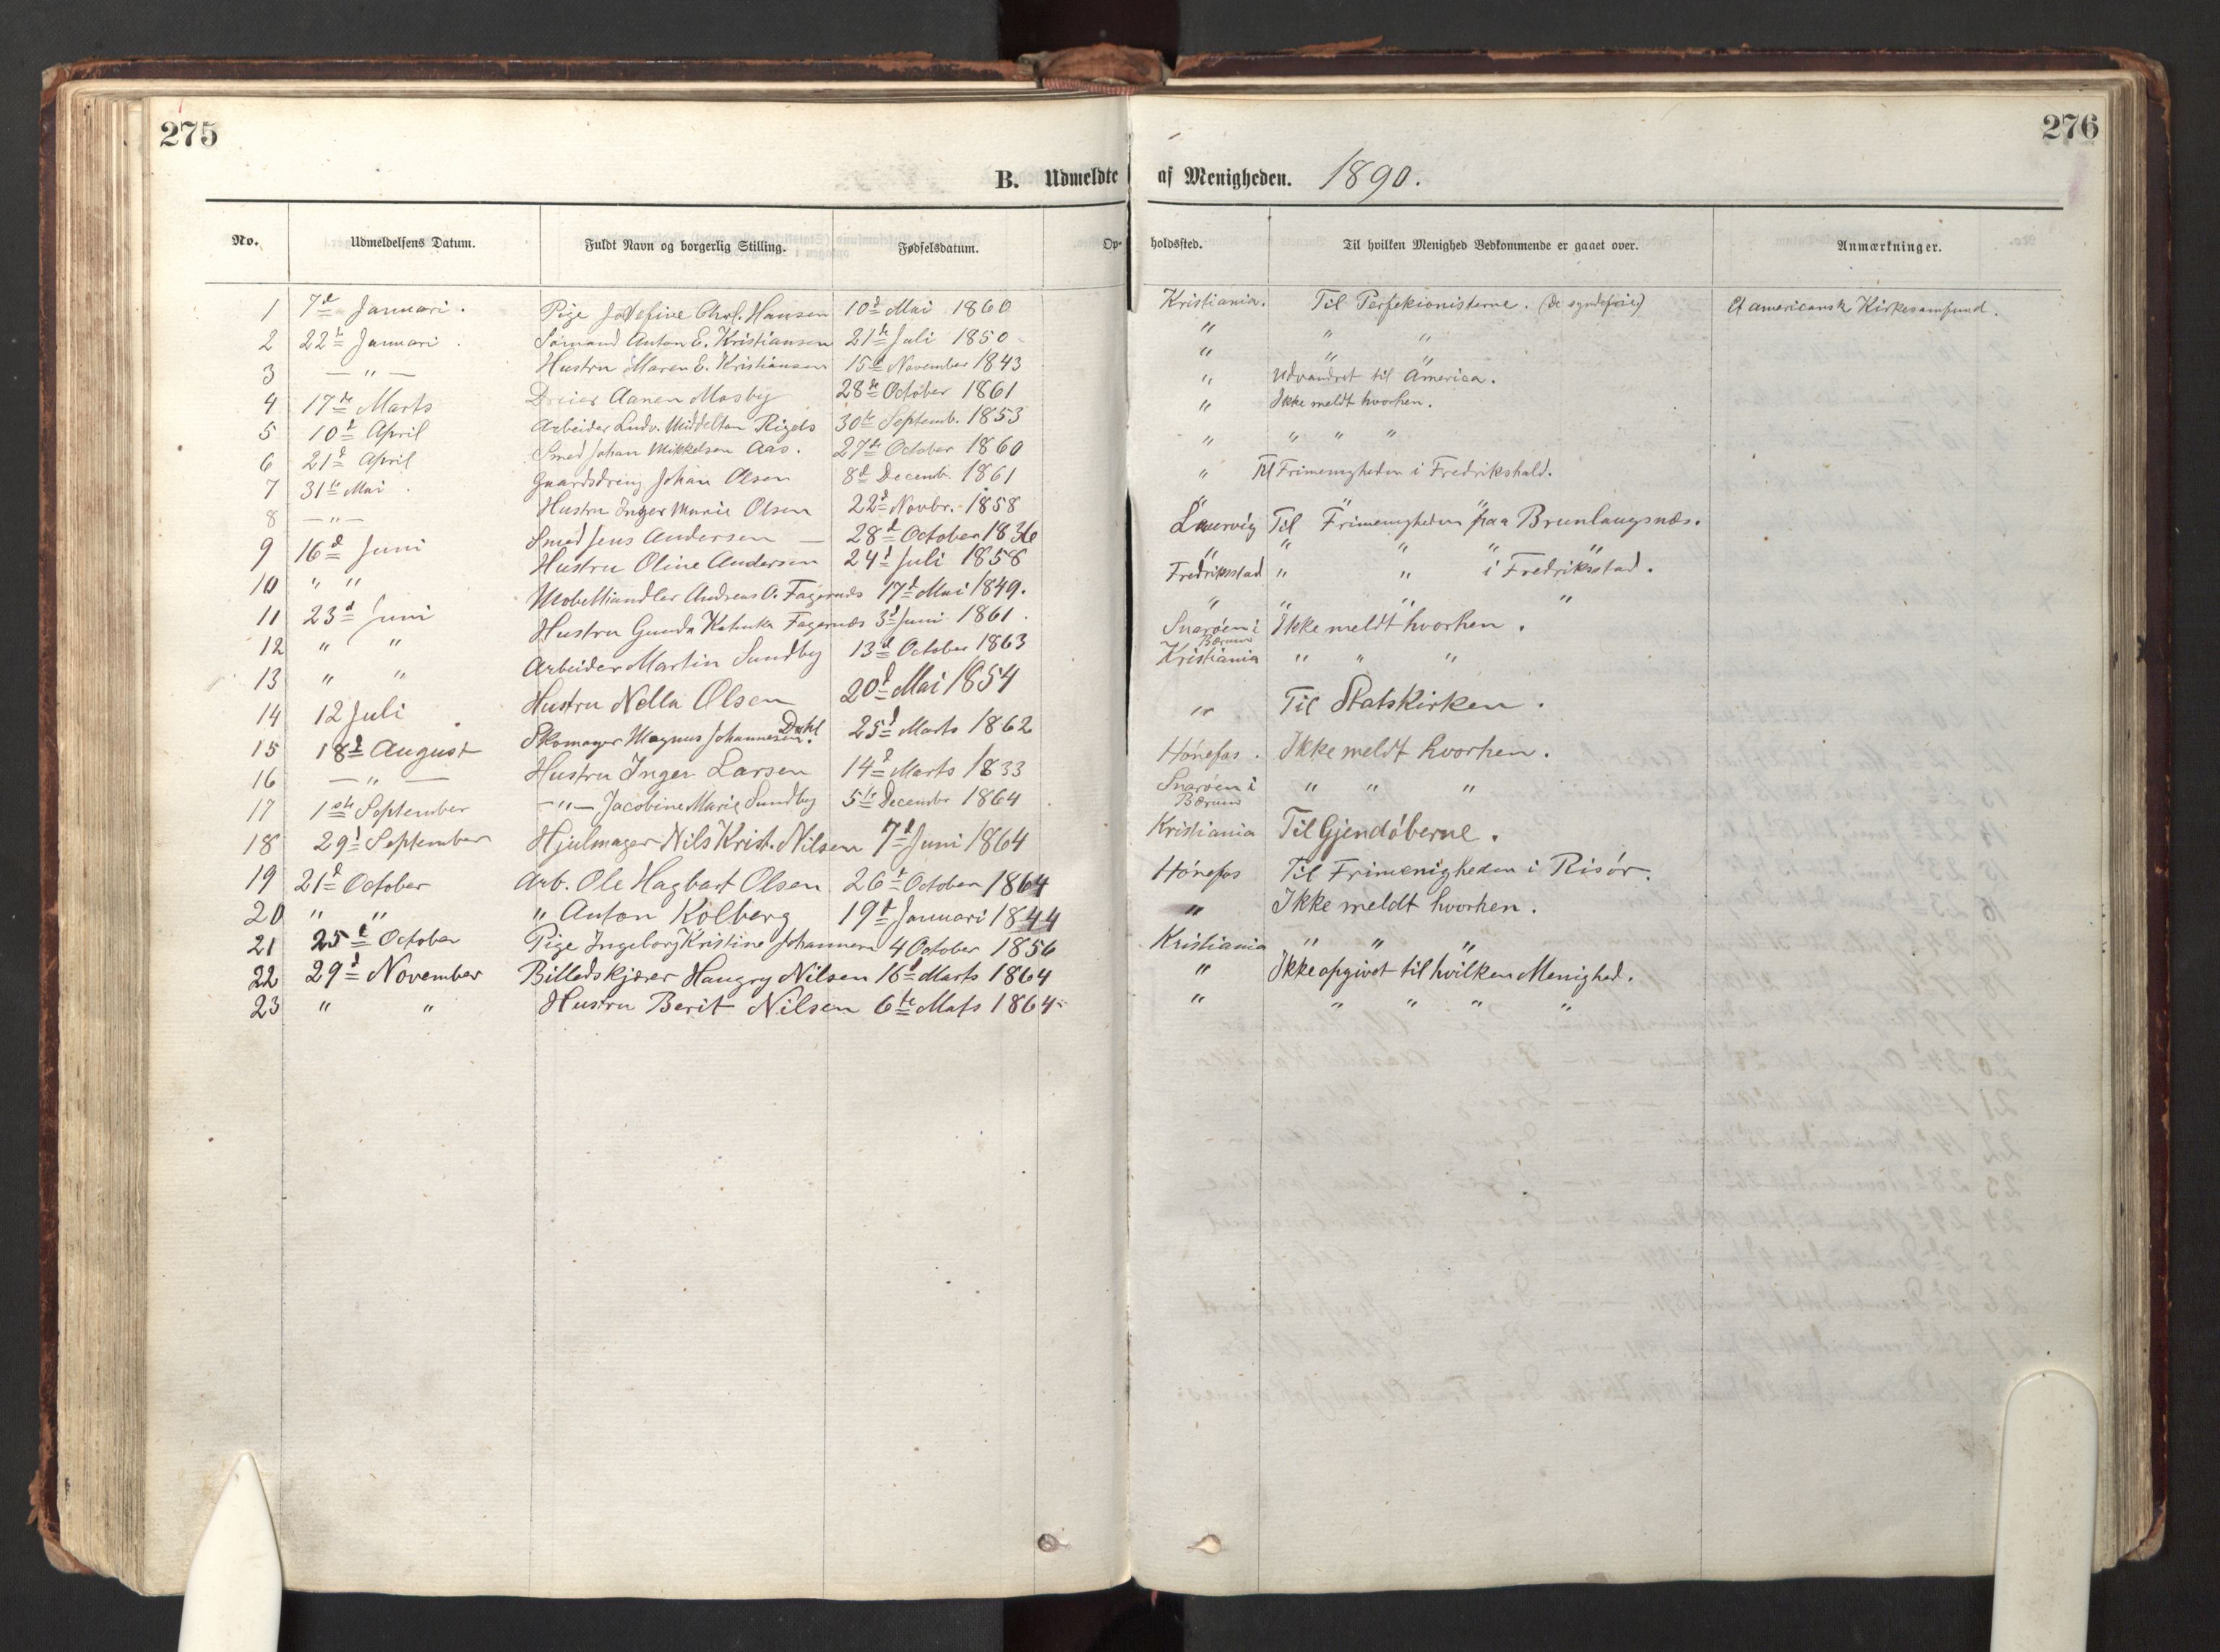 275
276
B. Udmeldte af Menigheden. 1890.
No. Udmeldelsens Datum. Fuldt Navn og borgerlig Stilling. Fødselsdatum. Opholdssted. Til hvilken Menighed Vedkommende er gaaet over. Anmærkninger.
1 7d Januari. Pige Josefine Hansen 10d Mai 1860 Kristiania. Til Perfekionisterne. (de syndefrie) Et americansk Kirkesamfund.
2 22de Januari. Sømand Anton E. Kristiansen 21de Juli 1850 " " "
3 — " — Hustru Maren E. Kristiansen 15d November 1843 " " "
4 17de Marts Dreier Aanen Mosby 28de October 1861 " Udvandret til America.
5 10d April Arbeider Ludv. Middelton Rigels 30te Septemb. 1853 " Ikke meldt hvorhen.
6 21d April Smed Johan Mikkelsen Aas. 27de October 1860 " " " "
7 31te Mai. Gaardsdreng Johan Olsen 8d Decemb. 1861 " Til Frimenigheden i Fredrikshald.
8 — " — Hustru Inger Marie Olsen 22d Novbr. 1858 " " "
9 16d Juni Smed Jens Andersen — 28d October 1836 Laurvig Til Frimenigheden paa Brunlaugsnæs.
10 " " Hustru Oline Andersen 24d Juli 1858 " " " " "
11 23d Juni Møbelhandler Andreas O. Fagernæs 17d Mai 1849. Fredriksstad " " i Fredriksstad.
12 " " Hustru Gunda Katinka Fagernæs 3d Juni 1861. " " " "
13 " " Arbeider Martin Sundby 13d October 1863 Snarøen i Bærum Ikke meldt hvorhen.
14 12 Juli. Hustru Nella Olsen 20d Mai 1854 Kristiania " " "
15 18d August Skomager Magnus Johannesen Dahl. 25d Marts 1862 " Til Statskirken.
16 — " — Hustru Inger Larsen 14d Marts 1833 Hönefos. Ikke meldt hvorhen.
17 1ste September — " — Jacobine Marie Sundby 5te Decembr 1864 Snarøen i Bærum " " "
18 29d September Hjulmager Nils Krist. Nilsen 7d Juni 1864 Kristiania Til Gjendöberne.
19 21d October Arb. Ole Hagbart Olsen 26d October 1864 Hönefos Til Frimenigheden i Risör.
20 " " " Anton Kolberg 19d Januari 1844 " Ikke meldt hvorhen.
21 25d October Pige Ingeborg Kristine Johannesen 4 October 1856 Kristiania " " "
22 29d November Billedskjærer Haugry Nilsen 16d Marts 1864 " Ikke opgivet til hvilken Menighed.
23 " " Hustru Berit Nilsen 6te Mats 1864 " " " " "